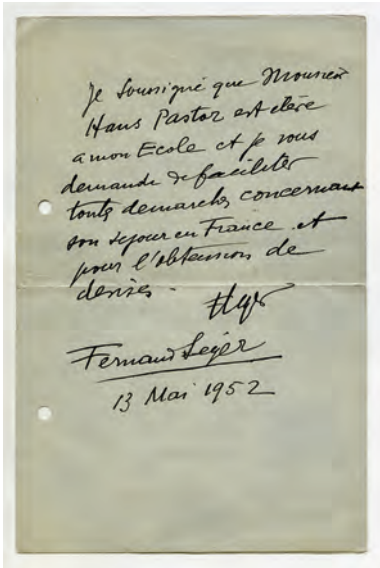 Je soussigné que Monsieur
Hans Pastor est élève
a mon Ecole et je vous
demande de faciliter
touts demarches concernant
son sejour en France et
pour l'obtension de
devises.
FLeger
Fernand Leger
13 Mai 1952